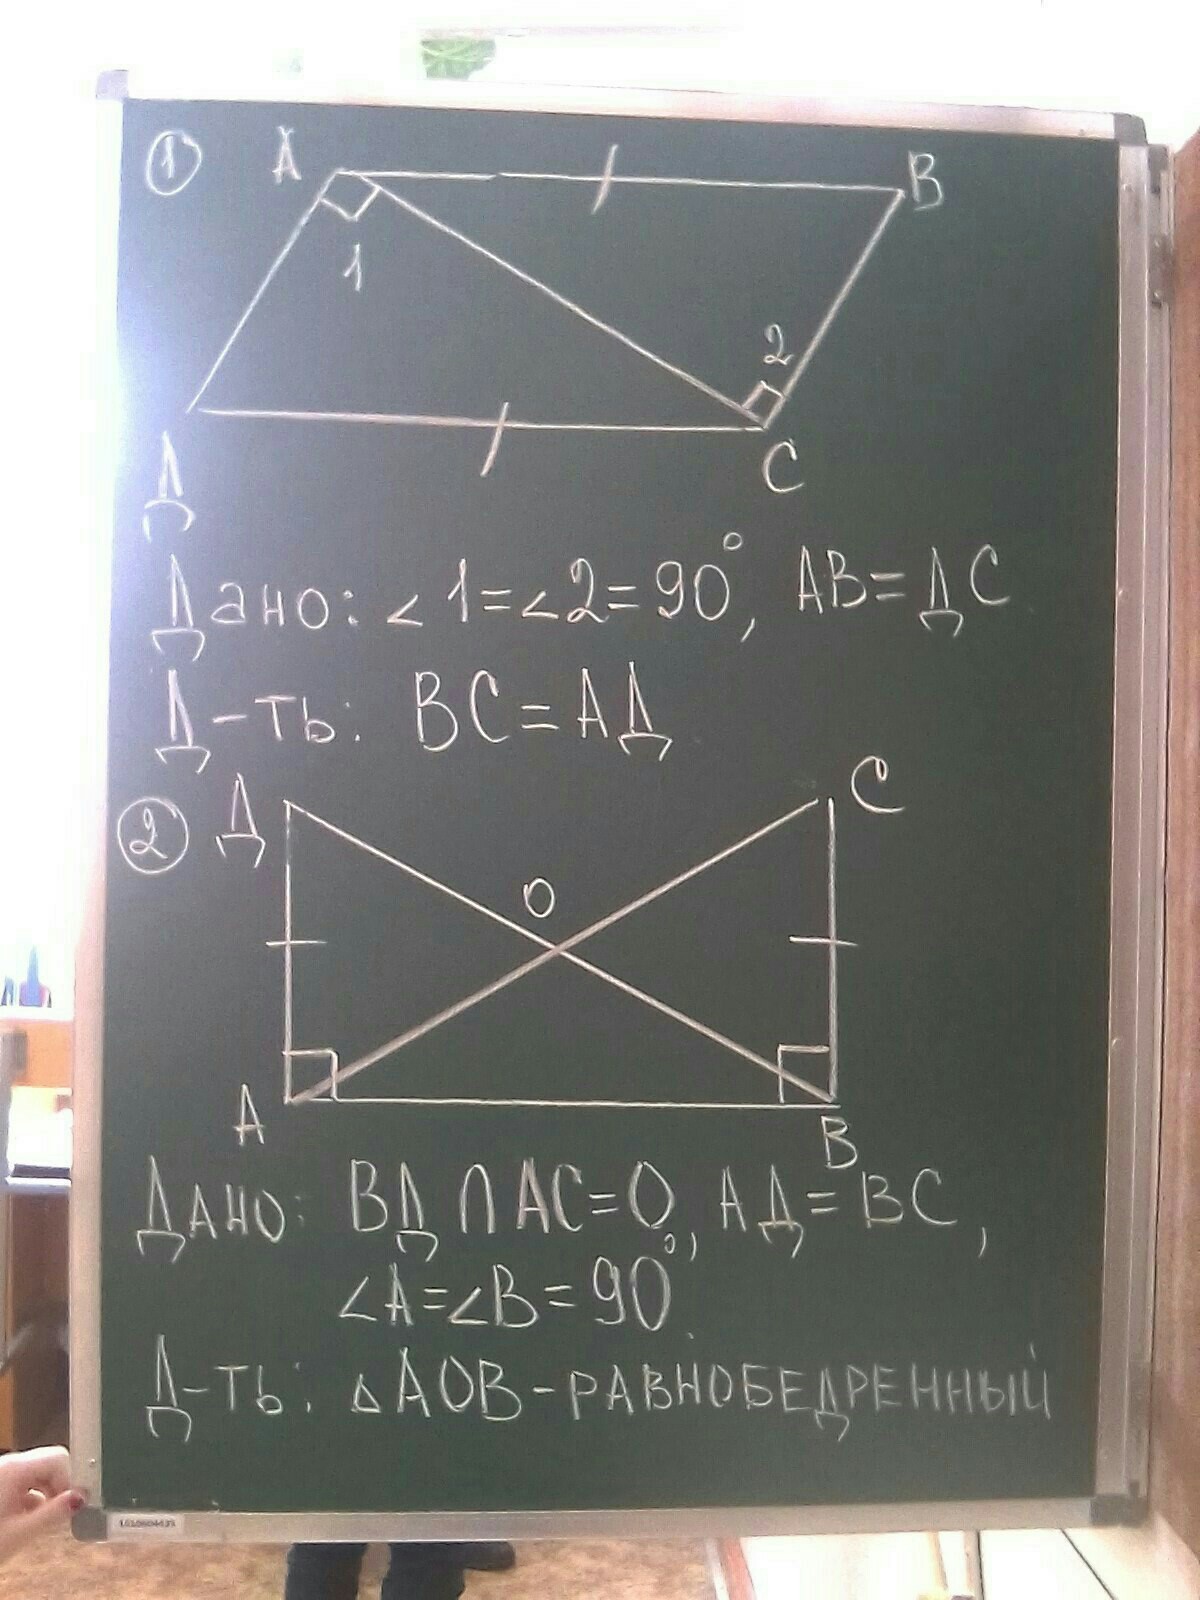 1
А
В
1
2
Д
С
Дано: ∠1=∠2=90°, АВ=ДС
Д-ть: ВС=АД
2
Д
С
О
А
В
Дано: ВД∩АС=О, АД=ВС,
∠А=∠В=90°.
Д-ть: △АОВ-равнобедренный